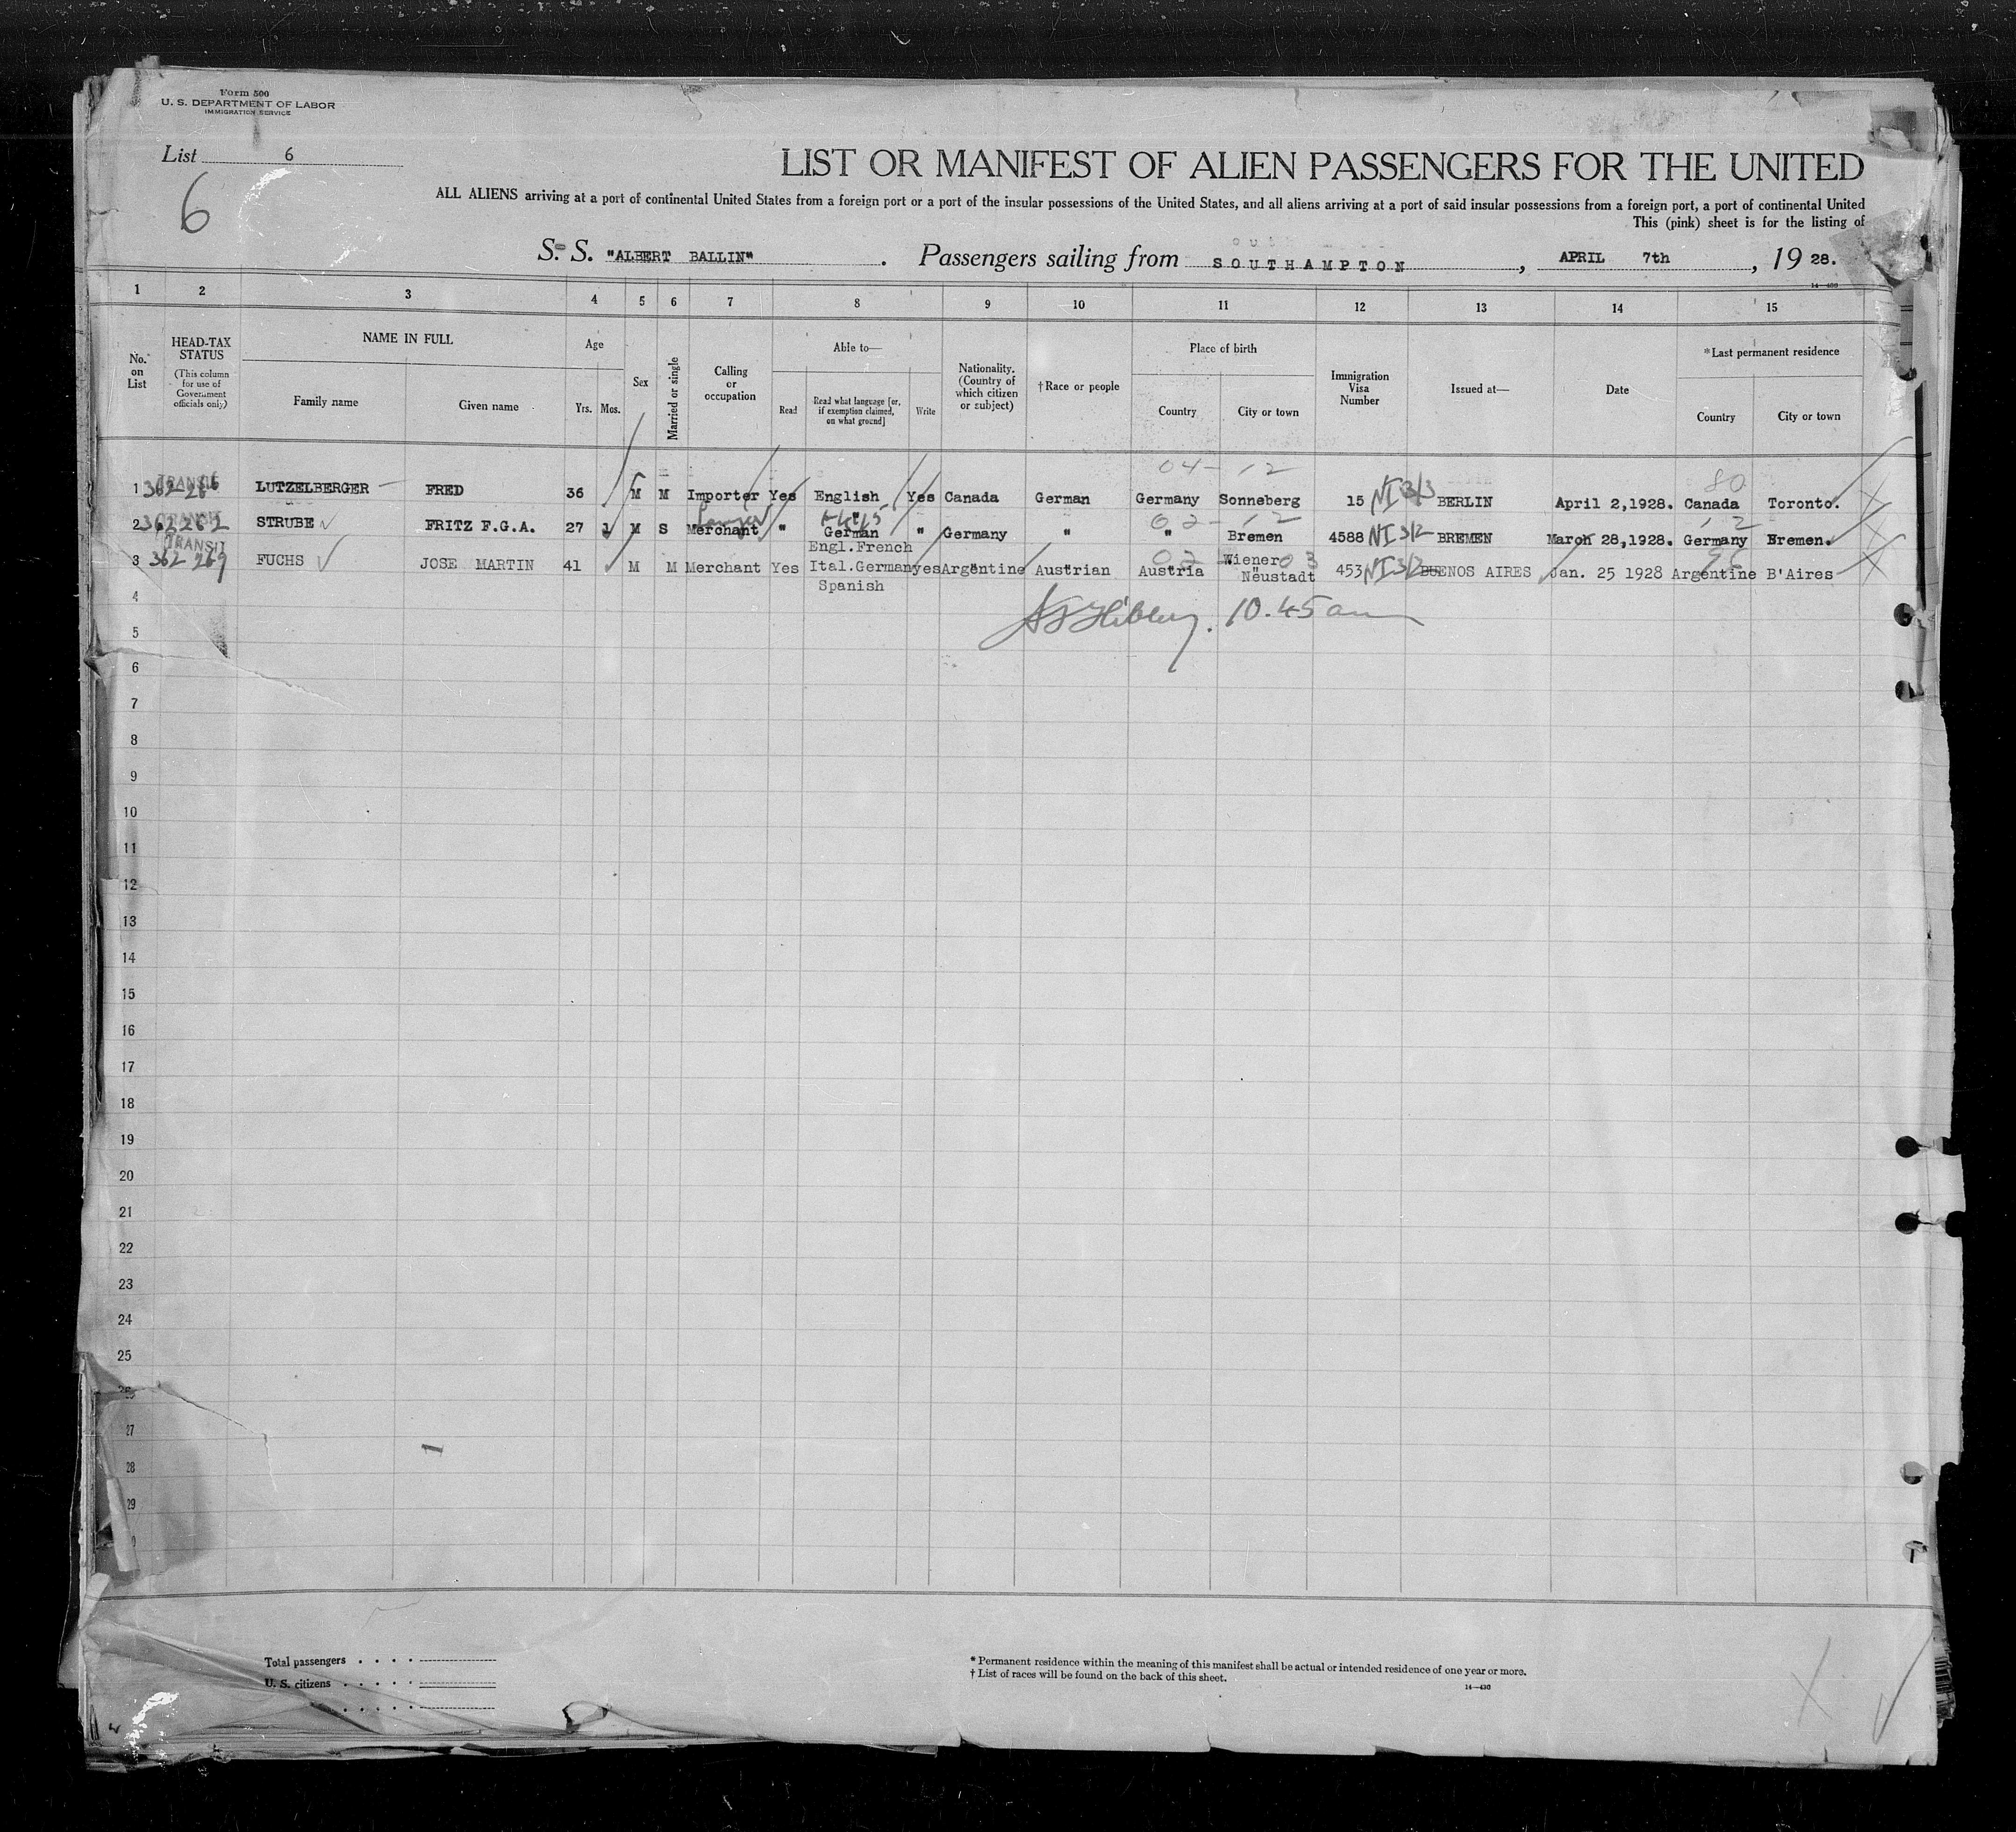 Form 500
U. S. DEPARTMENT OF LABOR
IMMIGRATION SERVICE
List 6
6
LIST OR MANIFEST OF ALIEN PASSENGERS FOR THE UNITED
ALL ALIENS arriving at a port of continental United States from a foreign port or a port of the insular possessions of the United States, and all aliens arriving at a port of said insular possessions from a foreign port, a port of continental United
This (pink) sheet is for the listing of
S. S. "ALBERT BALLIN" . Passengers sailing from SOUTHAMPTON , APRIL 7th , 19 28.
14—430
1 2 3 4 5 6 7 8 9 10 11 12 13 14 15
No. on List
HEAD-TAX STATUS
(This column for use of Government officials only)
NAME IN FULL
Family name Given name
Age
Yrs. Mos.
Sex
Married or single
Calling or occupation
Able to—
Read Read what language [or, if exemption claimed, on what ground] Write
Nationality. (Country of which citizen or subject)
†Race or people
Place of birth
Country City or town
Immigration Visa Number
Issued at—
Date
*Last permanent residence
Country City or town
04-12 80
1 TRANSIT LUTZELBERGER FRED 36 M M Importer Yes English Yes Canada German Germany Sonneberg 15 NI 3/3 BERLIN April 2,1928. Canada Toronto.
02-12 12
2 TRANSIT 362262 STRUBE FRITZ F.G.A. 27 M S Merchant " German " Germany " " Bremen 4588 NI 3/2 BREMEN March 28,1928. Germany Bremen.
Engl.French
3 TRANSIT 362 269 FUCHS JOSE MARTIN 41 M M Merchant Yes Ital.German yes Argentine Austrian Austria Wiener Neustadt 453 NI 3/2 BUENOS AIRES Jan. 25 1928 Argentine B'Aires
Spanish
10.45 am
4
5
6
7
8
9
10
11
12
13
14
15
16
17
18
19
20
21
22
23
24
25
26
27
28
29
1
Total passengers
U. S. citizens
* Permanent residence within the meaning of this manifest shall be actual or intended residence of one year or more.
† List of races will be found on the back of this sheet.
14—430